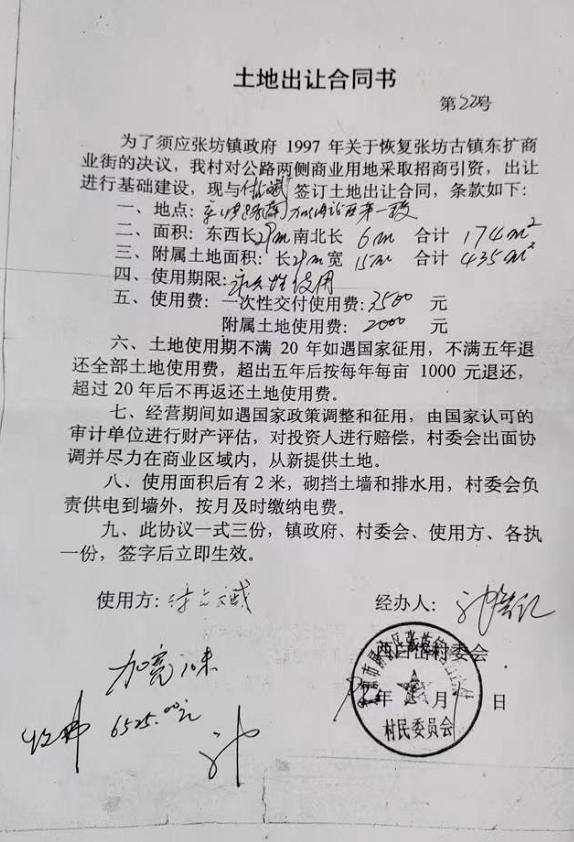 土地出让合同书
第22号
为了须应张坊镇政府 1997 年关于恢复张坊古镇东扩商
业街的决议，我村对公路两侧商业用地采取招商引资，出让
进行基础建设，现与 签订土地出让合同，条款如下：
一、地点：
二、面积：东西长29m南北长 6m 合计 174m²
三、附属土地面积：长29m宽 15m 合计 435m²
四、使用期限：永久性使用
五、使用费：一次性交付使用费：3500 元
附属土地使用费：2000 元
六、土地使用期不满 20 年如遇国家征用，不满五年退
还全部土地使用费，超出五年后按每年每亩 1000 元退还，
超过 20 年后不再返还土地使用费。
七、经营期间如遇国家政策调整和征用，由国家认可的
审计单位进行财产评估，对投资人进行赔偿，村委会出面协
调并尽力在商业区域内，从新提供土地。
八、使用面积后有 2 米，砌挡土墙和排水用，村委会负
责供电到墙外，按月及时缴纳电费。
九、此协议一式三份，镇政府、村委会、使用方、各执
一份，签字后立即生效。
使用方： 经办人：
西白岱村委会
年 月 日
村民委员会
加宽
6525.00元